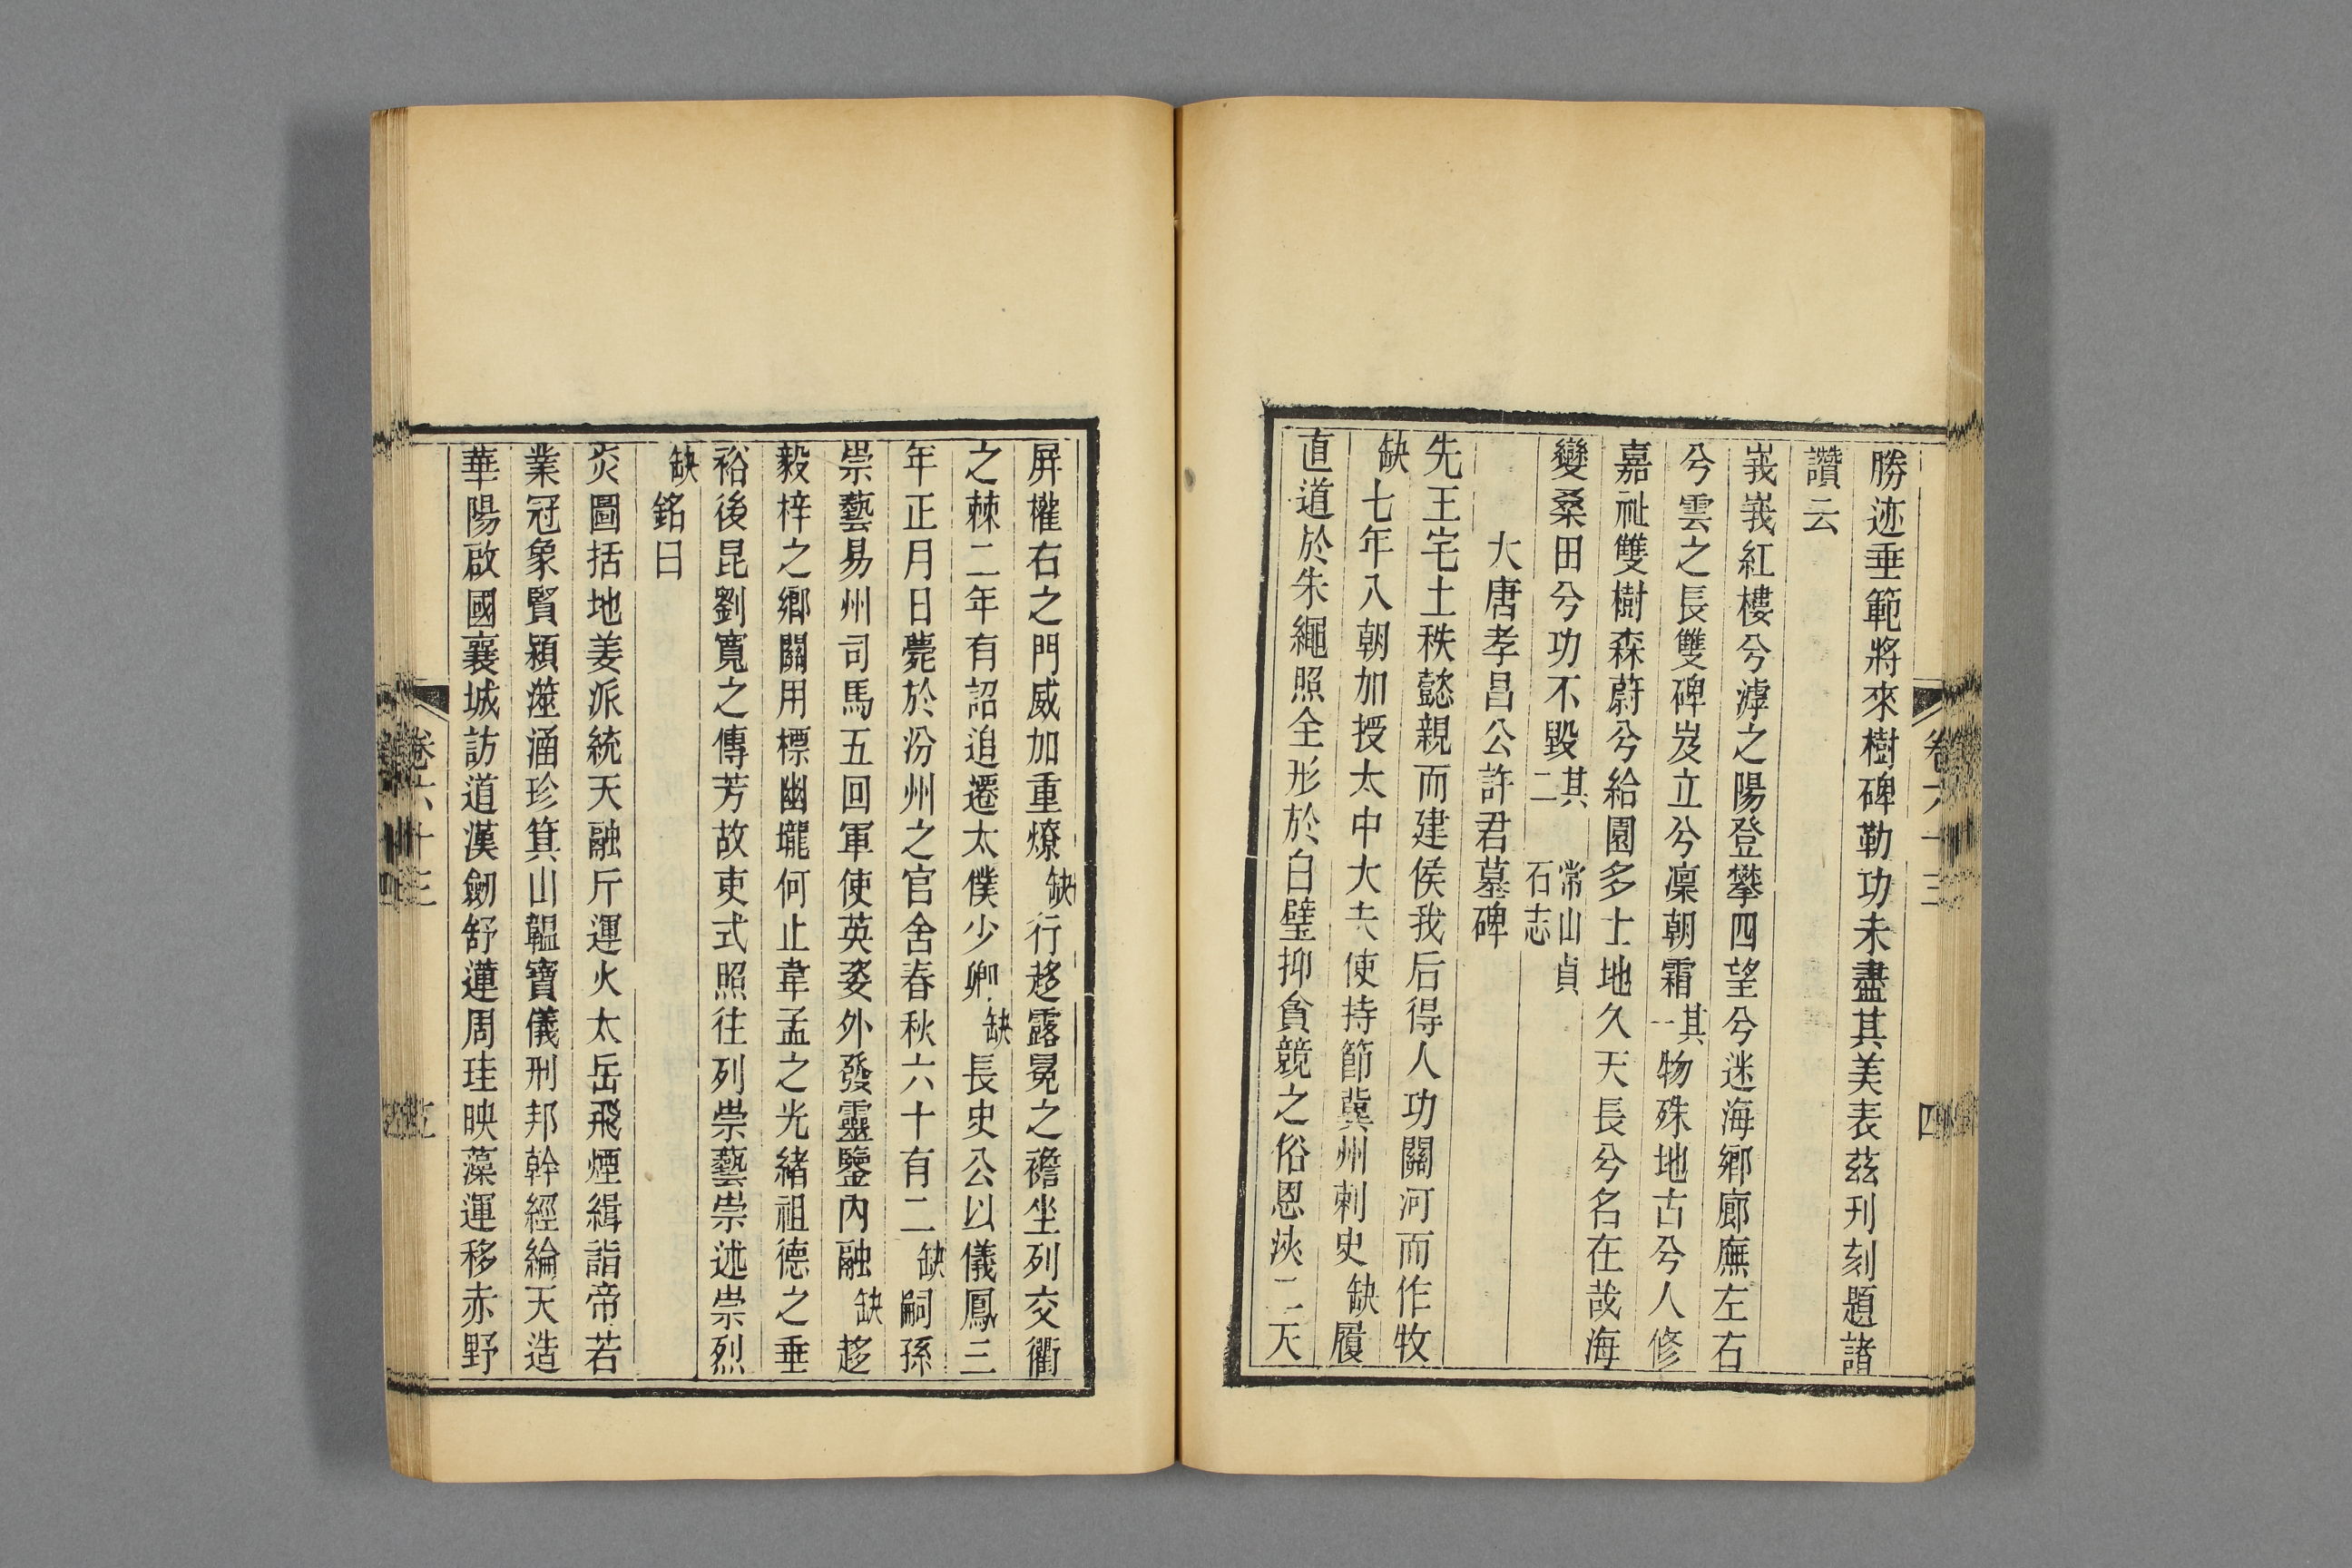 勝迹垂範將來樹碑勒功未盡其美表茲刊刻題諸
讚云
峩峩紅樓兮滹之陽登攀四望兮迷海鄉廊廡左右
兮雲之長雙碑岌立兮凜朝霜其一物殊地古兮人修
嘉祉雙樹森蔚兮給園多士地久天長兮名在哉海
變桑田兮功不毀其二 常山貞石志
大唐孝昌公許君墓碑
先王宅土秩懿親而建侯我后得人功闢河而作牧
缺七年入朝加授太中大夫使持節冀州刺史缺履
直道於朱繩照全形於白璧抑貪競之俗恩浹二天
屏權右之門威加重燎缺行趍露冕之襜坐列交衢
之棘二年有詔追遷太僕少卿缺長史公以儀鳳三
年正月日薨於汾州之官舍春秋六十有二缺嗣孫
崇藝易州司馬五回軍使英姿外發靈鑒內融缺趍
毅梓之鄉關用標幽壠何止韋孟之光緒祖德之垂
裕後昆劉寬之傳芳故吏式照往列崇藝崇述崇烈
缺銘曰
炎圖括地姜派統天融斤運火太岳飛煙緝諧帝若
業冠象賢潁澨涵珍箕山韞寶儀刑邦幹經綸天造
華陽啟國襄城訪道漢劒舒蓮周珪映藻運移赤野
卷六十三